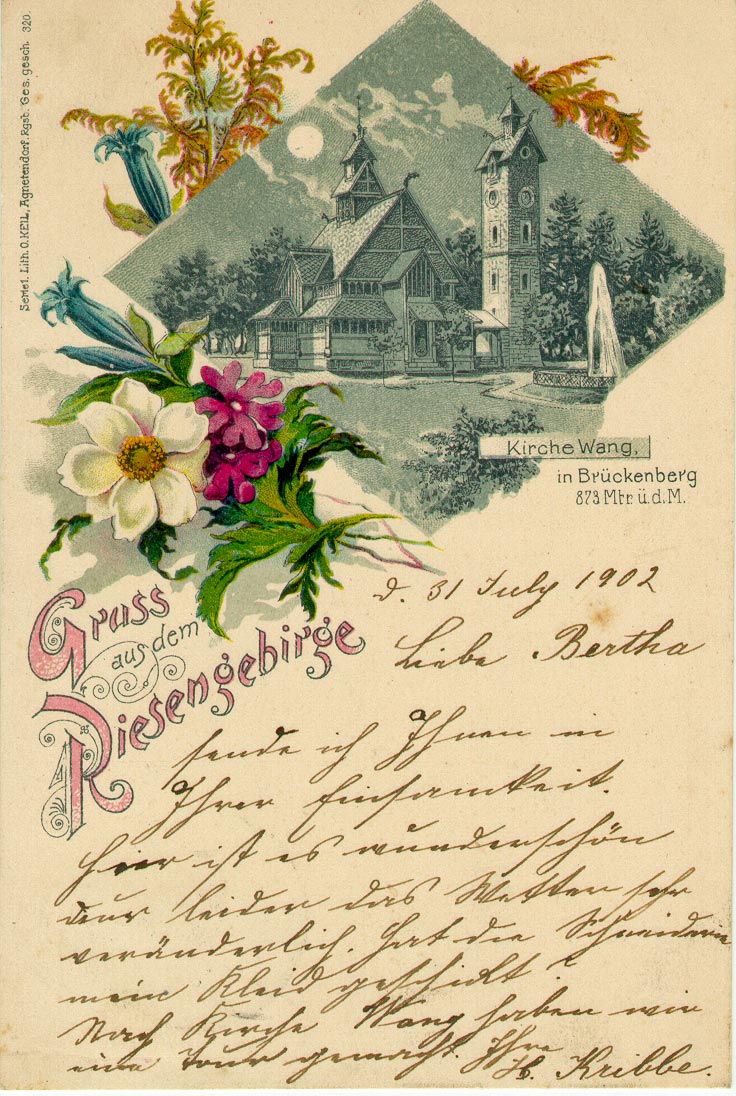 Serie 1. Lith. O. KEIL, Agnetendorf. Rgsb. Ges. gesch. 320.
Kirche Wang,
in Brückenberg
873 Mtr. ü. d. M.
Gruss
aus dem
Riesengebirge
d. 31 July 1902
Liebe Bertha
sende ich Ihnen in
Ihrer Einsamkeit.
Hier ist es wunderschön
nur leider das Wetter sehr
veränderlich. Hat die Schneiderin
mein Kleid geschickt?
Nach Kirche Wang haben wir
eine Tour gemacht. Ihre
H. Kribbe.